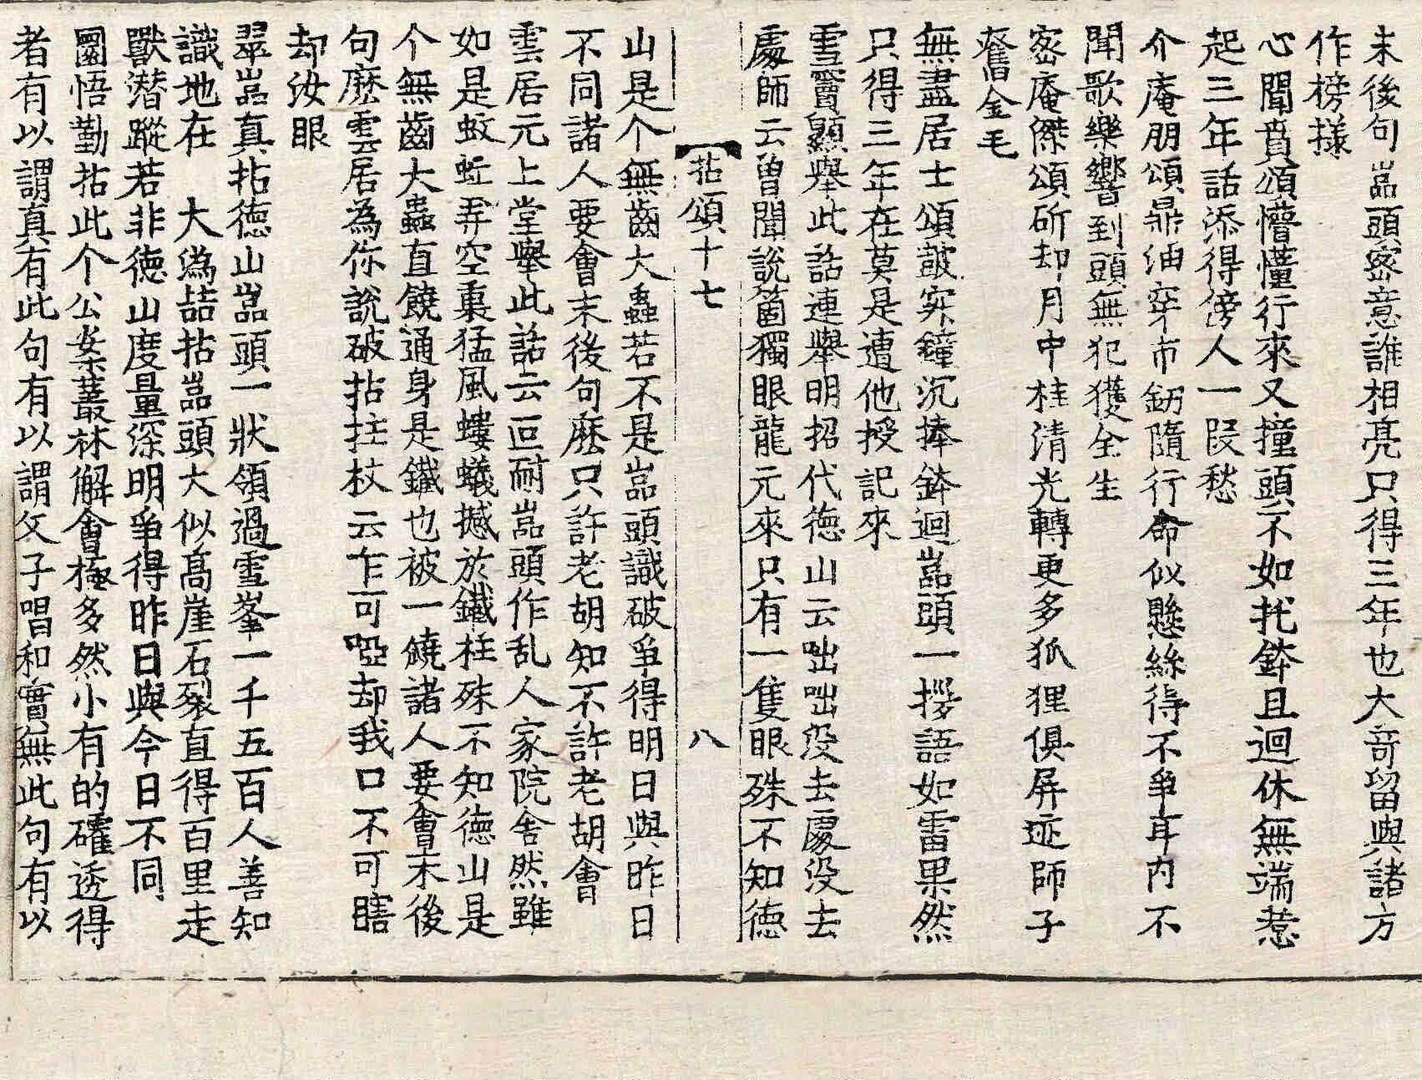 末後句嵓頭密意誰相亮只得三年也大奇留與諸方
作榜様
心聞賁頌懵懂行來又撞頭不如托鉢且迴休無端惹
起三年話添得傍人一段愁
介庵朋頌鼎油穽市釰隨行命似懸絲得不爭車內不
聞歌樂響到頭無犯獲全生
密庵傑頌斫却月中桂清光轉更多狐狸俱屏迹師子
奮金毛
無盡居士頌皷寂鐘沉捧鉢迴嵓頭一拶語如雷果然
只得三年在莫是遭他授記來
雪竇顯舉此話連舉明招代德山云咄咄没去處没去
處師云曾聞說箇獨眼龍元來只有一隻眼殊不知德
拈頌十七 八
山是个無齒大蟲若不是嵓頭識破爭得明日與昨日
不同諸人要會末後句麽只許老胡知不許老胡會
雲居元上堂舉此話云叵耐嵓頭作乱人家院舍然雖
如是蚊蚷弄空裏猛風螻蟻撼於鐵柱殊不知德山是
个無齒大蟲直饒通身是鐵也被一饒諸人要會末後
句麽雲居為你說破拈拄杖云乍可啞却我口不可瞎
却汝眼
翠嵓真拈德山嵓頭一狀領過雪峯一千五百人善知
識地在 大溈喆拈嵓頭大似高崖石裂直得百里走
獸潜蹤若非德山度量深明爭得昨日與今日不同
圜悟勤拈此个公案叢林解會極多然小有的確透得
者有以謂真有此句有以謂父子唱和實無此句有以